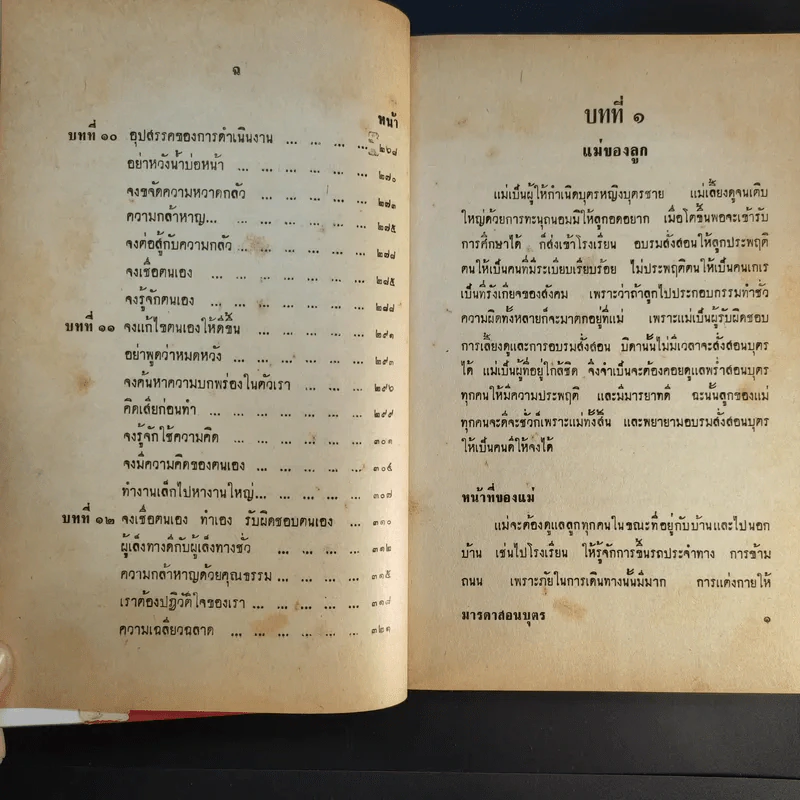 ฉ
หน้า
บทที่ ๑๐ อุปสรรคของการดำเนินงาน ... ... ... ... ๒๖๘
อย่าหวังน้ำบ่อหน้า ... ... ... ... ... ๒๗๐
จงขจัดความหวาดกลัว ... ... ... ... ๒๗๓
ความกล้าหาญ... ... ... ... ... ... ๒๗๕
จงต่อสู้กับความกลัว ... ... ... ... ... ๒๗๘
จงเชื่อตนเอง ... ... ... ... ... ... ๒๘๕
จงรู้จักตนเอง ... ... ... ... ... ... ๒๘๘
บทที่ ๑๑ จงแก้ไขตนเองให้ดีขึ้น ... ... ... ... ... ๒๙๑
อย่าพูดว่าหมดหวัง ... ... ... ... ... ๒๙๓
จงค้นหาความบกพร่องในตัวเรา ... ... ... ๒๙๖
คิดเสียก่อนทำ ... ... ... ... ... ... ๒๙๙
จงรู้จักใช้ความคิด ... ... ... ... ... ๓๐๑
จงมีความคิดของตนเอง ... ... ... ... ๓๐๕
ทำงานเล็กไปหางานใหญ่... ... ... ... ๓๐๗
บทที่ ๑๒ จงเชื่อตนเอง ทำเอง รับผิดชอบตนเอง ... ๓๑๐
ผู้เล็งทางดีกับผู้เล็งทางชั่ว ... ... ... ... ๓๑๒
ความกล้าหาญด้วยคุณธรรม ... ... ... ... ๓๑๕
เราต้องปฏิวัติใจของเรา ... ... ... ... ... ๓๑๗
ความเฉลียวฉลาด ... ... ... ... ... ... ๓๒๑
บทที่ ๑
แม่ของลูก
แม่เป็นผู้ให้กำเนิดบุตรหญิงบุตรชาย แม่เลี้ยงดูจนเติบ
ใหญ่ด้วยการทะนุถนอมมิให้ลูกอดอยาก เมื่อโตขึ้นพอจะเข้ารับ
การศึกษาได้ ก็ส่งเข้าโรงเรียน อบรมสั่งสอนให้ลูกประพฤติ
ตนให้เป็นคนที่มีระเบียบเรียบร้อย ไม่ประพฤติตนให้เป็นคนเกเร
เป็นที่รังเกียจของสังคม เพราะว่าถ้าลูกไปประกอบกรรมทำชั่ว
ความผิดทั้งหลายก็จะมาตกอยู่ที่แม่ เพราะแม่เป็นผู้รับผิดชอบ
การเลี้ยงดูและการอบรมสั่งสอน บิดานั้นไม่มีเวลาจะสั่งสอนบุตร
ได้ แม่เป็นผู้ที่อยู่ใกล้ชิด จึงจำเป็นจะต้องคอยดูแลพร่ำสอนบุตร
ทุกคนให้มีความประพฤติ และมีมารยาทดี ฉะนั้นลูกของแม่
ทุกคนจะดีจะชั่วก็เพราะแม่ทั้งสิ้น และพยายามอบรมสั่งสอนบุตร
ให้เป็นคนดีให้จงได้
หน้าที่ของแม่
แม่จะต้องดูแลลูกทุกคนในขณะที่อยู่กับบ้านและไปนอก
บ้าน เช่นไปโรงเรียน ให้รู้จักการขึ้นรถประจำทาง การข้าม
ถนน เพราะภัยในการเดินทางนั้นมีมาก การแต่งกายให้
มารดาสอนบุตร ๑